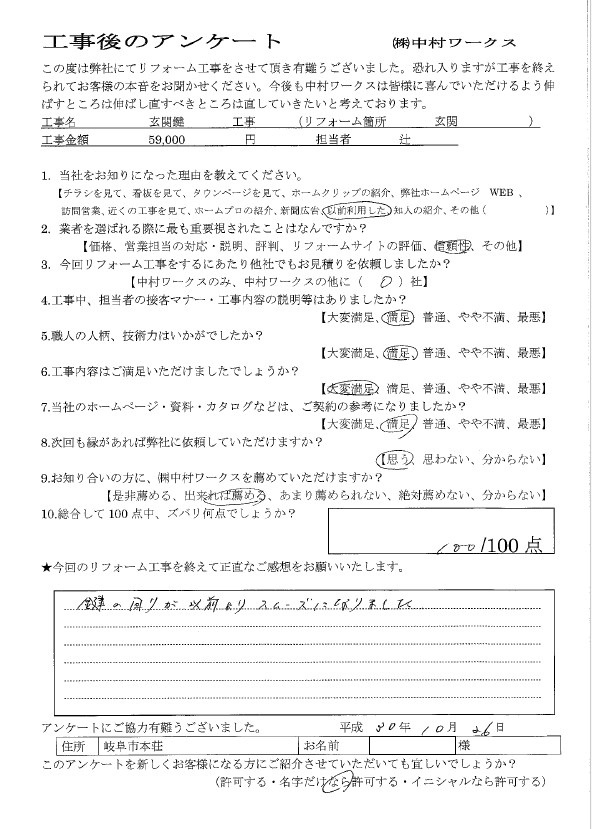 工事後のアンケート　㈱中村ワークス
この度は弊社にてリフォーム工事をさせて頂き有難うございました。恐れ入りますが工事を終え
られてお客様の本音をお聞かせください。今後も中村ワークスは皆様に喜んでいただけるよう伸
ばすところは伸ばし直すべきところは直していきたいと考えております。
工事名　玄関鍵　工事　（リフォーム箇所　玄関　）
工事金額　59,000　円　担当者　辻
1. 当社をお知りになった理由を教えてください。
【チラシを見て、看板を見て、タウンページを見て、ホームクリップの紹介、弊社ホームページ　WEB 、
訪問営業、近くの工事を見て、ホームプロの紹介、新聞広告、以前利用した、知人の紹介、その他（　）】
2. 業者を選ばれる際に最も重要視されたことはなんですか？
【価格、営業担当の対応・説明、評判、リフォームサイトの評価、信頼性、その他】
3. 今回リフォーム工事をするにあたり他社でもお見積りを依頼しましたか？
【中村ワークスのみ、中村ワークスの他に（　0　）社】
4.工事中、担当者の接客マナー・工事内容の説明等はありましたか？
【大変満足、満足、普通、やや不満、最悪】
5.職人の人柄、技術力はいかがでしたか？
【大変満足、満足、普通、やや不満、最悪】
6.工事内容はご満足いただけましたでしょうか？
【大変満足、満足、普通、やや不満、最悪】
7.当社のホームページ・資料・カタログなどは、ご契約の参考になりましたか？
【大変満足、満足、普通、やや不満、最悪】
8.次回も縁があれば弊社に依頼していただけますか？
【思う、思わない、分からない】
9.お知り合いの方に、㈱中村ワークスを薦めていただけますか？
【是非薦める、出来れば薦める、あまり薦められない、絶対薦めない、分からない】
10.総合して 100 点中、ズバリ何点でしょうか？
100/100 点
★今回のリフォーム工事を終えて正直なご感想をお願いいたします。
鍵の回りが以前よりスムーズになりました
アンケートにご協力有難うございました。　平成 30年 10月 26日
住所　岐阜市本荘　お名前　様
このアンケートを新しくお客様になる方にご紹介させていただいても宜しいでしょうか？
（許可する・名字だけなら許可する・イニシャルなら許可する）